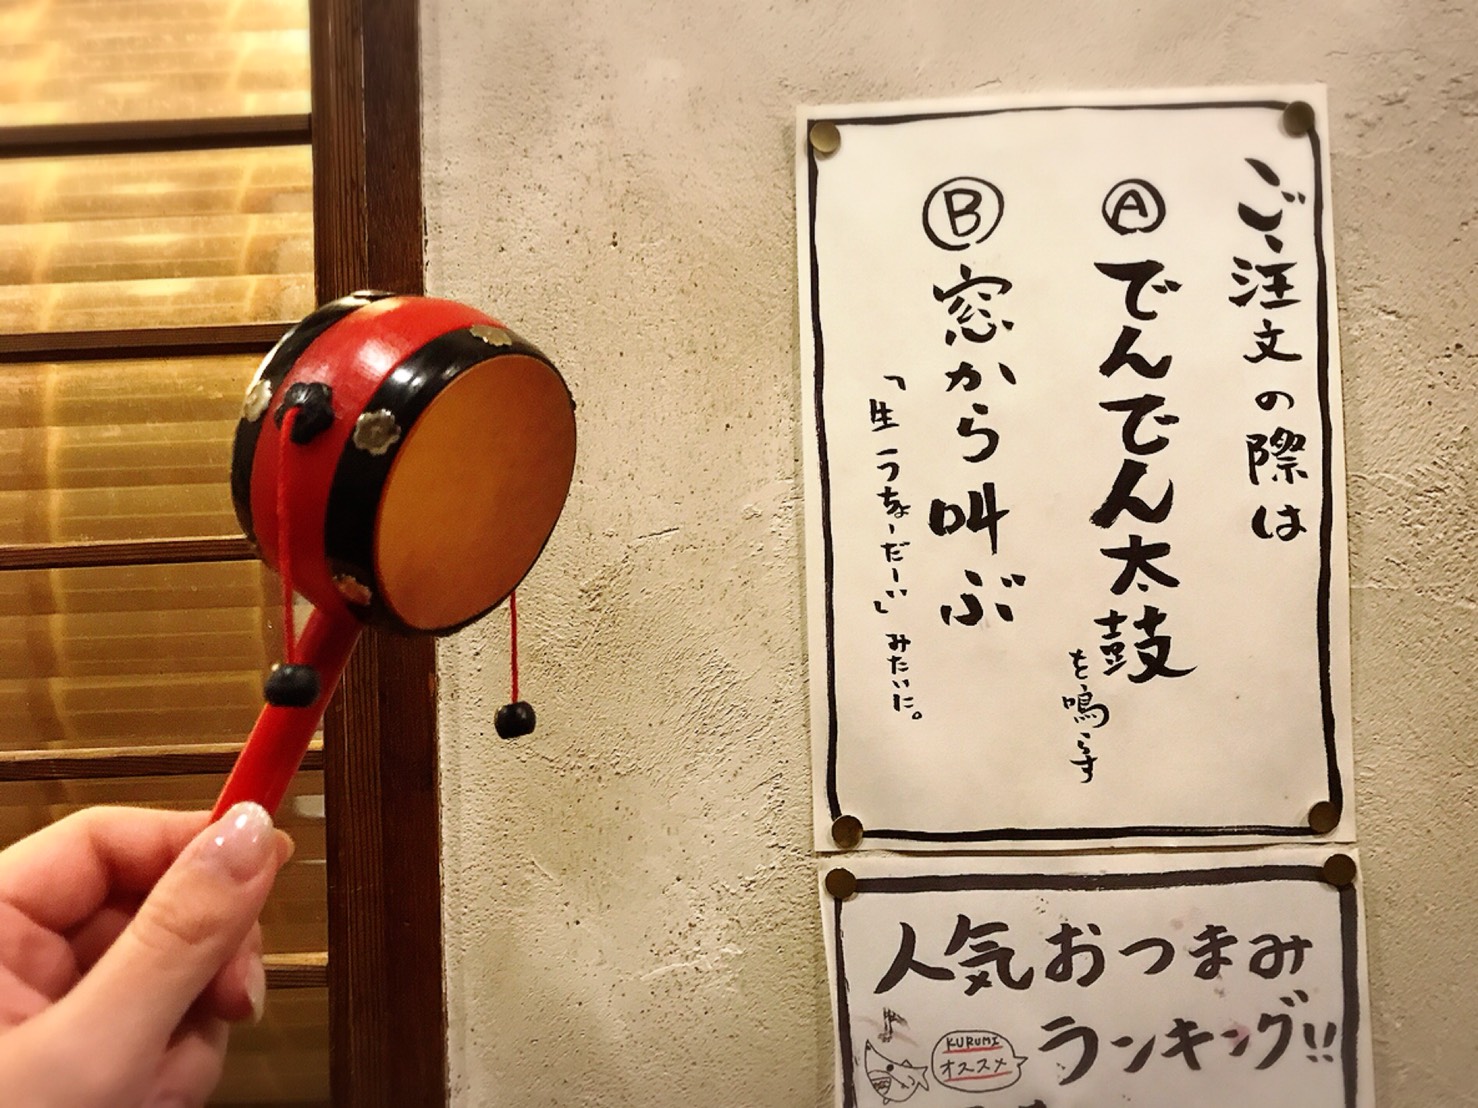 ご注文の際は
Ⓐでんでん太鼓を鳴らす
Ⓑ窓から叫ぶ
「生一つちょーだーい」みたいに。
人気おつまみ
ランキング!!
KURUMI
オススメ